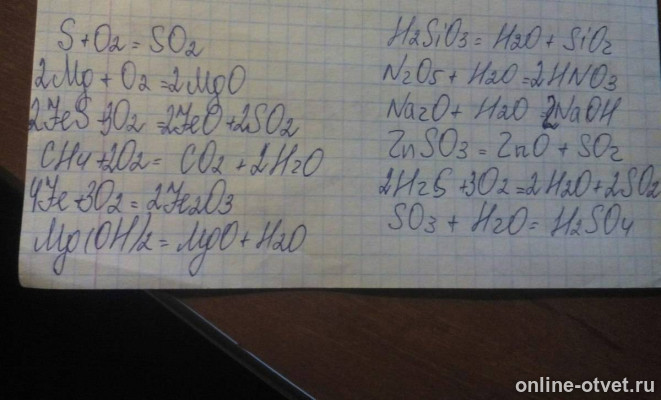 S+O2=SO2
2Mg+O2=2MgO
2FeS+3O2=2FeO+2SO2
CH4+2O2=CO2+2H2O
4Fe+3O2=2Fe2O3
Mg(OH)2=MgO+H2O
H2SiO3=H2O+SiO2
N2O5+H2O=2HNO3
Na2O+H2O=2NaOH
ZnSO3=ZnO+SO2
2H2S+3O2=2H2O+2SO2
SO3+H2O=H2SO4
online-otvet.ru